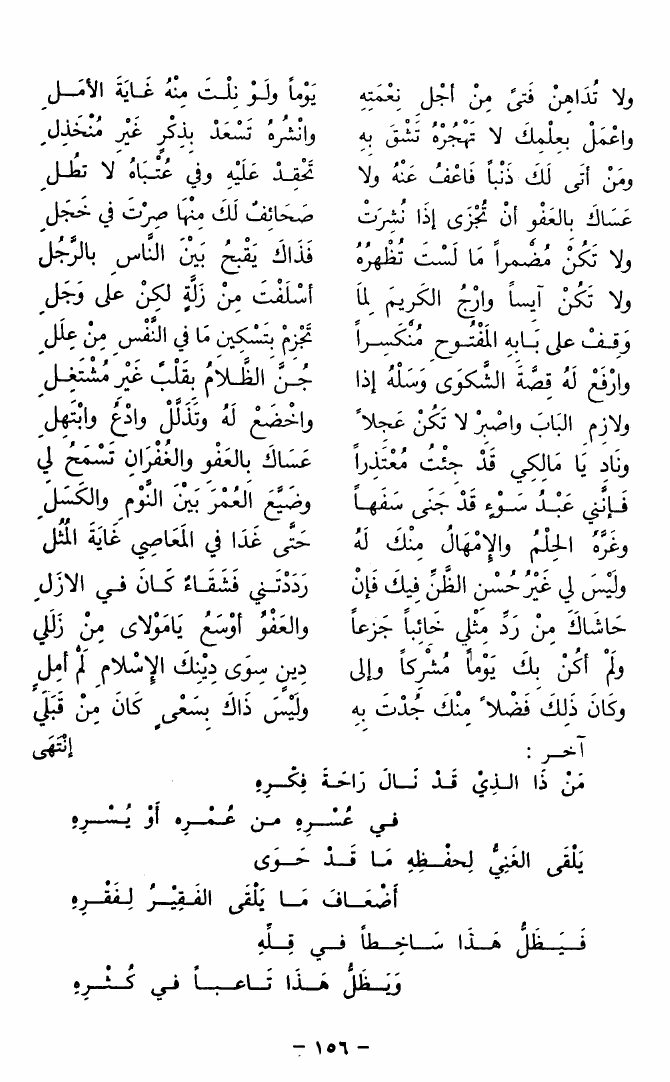 ولا تُدَاهِنْ فَتىً مِنْ أجْلِ نِعْمَتِهِ يَوْماً ولَوْ نِلْتَ مِنْهُ غَايَةَ الأَمَلِ
واعْمَلْ بِعلْمِكَ لا تَهْجُرْهُ تَشْقَ بِهِ وانْشُرْهُ تَسْعَدْ بِذِكْرٍ غَيْرِ مُنْخَذِلِ
ومَنْ أتَى لَكَ ذَنْباً فَاعْفُ عَنْهُ ولا تَحْقِدْ عَلَيْهِ وفي عُتْبَاهُ لا تطُلِ
عَسَاكَ بالعَفْوِ أنْ تُجْزَى إذَا نُشِرَتْ صَحَائِفٌ لَكَ مِنْهَا صِرْتَ في خَجَلِ
ولا تَكُنْ مُضْمِراً مَا لَسْتَ تُظْهِرُهُ فَذَاكَ يَقْبحُ بَيْنَ النَّاسِ بالرَّجُلِ
ولا تَكُنْ آيساً وارْجُ الكَرِيمَ لِمَا أسْلَفْتَ مِنْ زَلَّةٍ لكِنْ على وَجَلِ
وَقِفْ على بَابِهِ المَفْتُوحِ مُنْكَسِراً تَجْزِمْ بِتَسْكِينِ مَا في النَّفْسِ مِنْ عِلَلِ
وارْفَعْ لَهُ قِصَّةَ الشَّكْوَى وَسَلْهُ إذا جُنَّ الظَّلامُ بِقَلْبٍ غَيْرِ مُشْتَغِلِ
ولازِمِ البَابَ واصْبِرْ لا تَكُنْ عَجِلاً واخْضَعْ لَهُ وتَذَلَّلْ وادْعُ وابْتَهِلِ
ونَادِ يَا مَالِكِي قَدْ جِئْتُ مُعْتَذِراً عَسَاكَ بالعَفْوِ والغُفْرَانِ تَسْمَحُ لِي
فَإنَّني عَبْدُ سَوْءٍ قَدْ جَنَى سَفَهاً وضَيَّعَ العُمْرَ بَيْنَ النَّوْمِ والكَسَلِ
وغَرَّهُ الحِلْمُ والإمْهَالُ مِنْكَ لَهُ حَتَّى غَدَا في المَعَاصِي غَايَةَ المُثُلِ
ولَيْسَ لي غَيْرُ حُسْنِ الظَّنِّ فِيكَ فَإنْ رَدَدْتَنِي فَشَقَاءٌ كَانَ فِي الازَلِ
حَاشَاكَ مِنْ رَدِّ مِثْلِي خَائِباً جَزِعاً والعَفْوُ أوْسَعُ يَامَوْلاى مِنْ زَلَلِي
ولَمْ أكُنْ بِكَ يَوْماً مُشْرِكاً وإلى دِينٍ سِوَى دِيْنِكَ الإسْلامِ لَمْ أمِلِ
وكَانَ ذَلِكَ فَضْلاً مِنْكَ جُدْتَ بِهِ ولَيْسَ ذَاكَ بِسَعْيٍ كَانَ مِنْ قَبَلِي
إنْتَهَى
آخر :
مَنْ ذَا الذِيْ قَدْ نَالَ رَاحَةَ فِكْرِهِ
في عُسْرِهِ مِن عُمْرِه أوْ يُسْرِهِ
يَلْقَى الغَنِيُّ لِحِفْظِهِ مَا قَدْ حَوَى
أضْعَافَ مَا يَلْقَى الفَقِيْرُ لِفَقْرِهِ
فَيَظَلُّ هَذَا سَاخِطاً فِي قِلِّهِ
وَيَظَلُّ هَذَا تَاعِباً فِي كُثْرِهِ
– ١٥٦ –